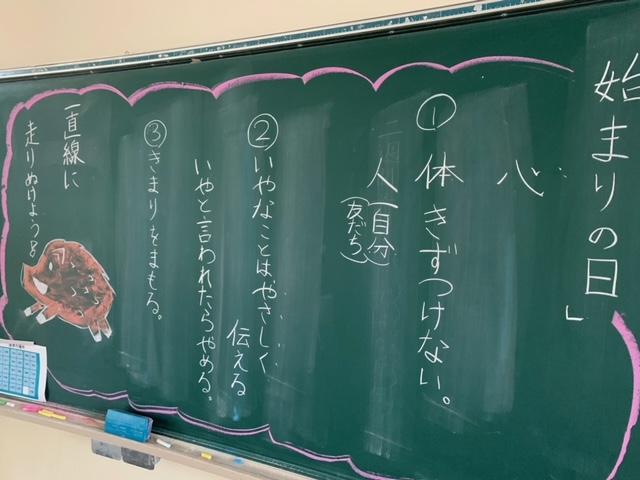 始まりの日」
心
① 体 きずつけない。
人(自分
友だち)
② いやなことはやさしく
伝える
いやと言われたらやめる。
③ きまりをまもる。
一直線に
走りぬけよう